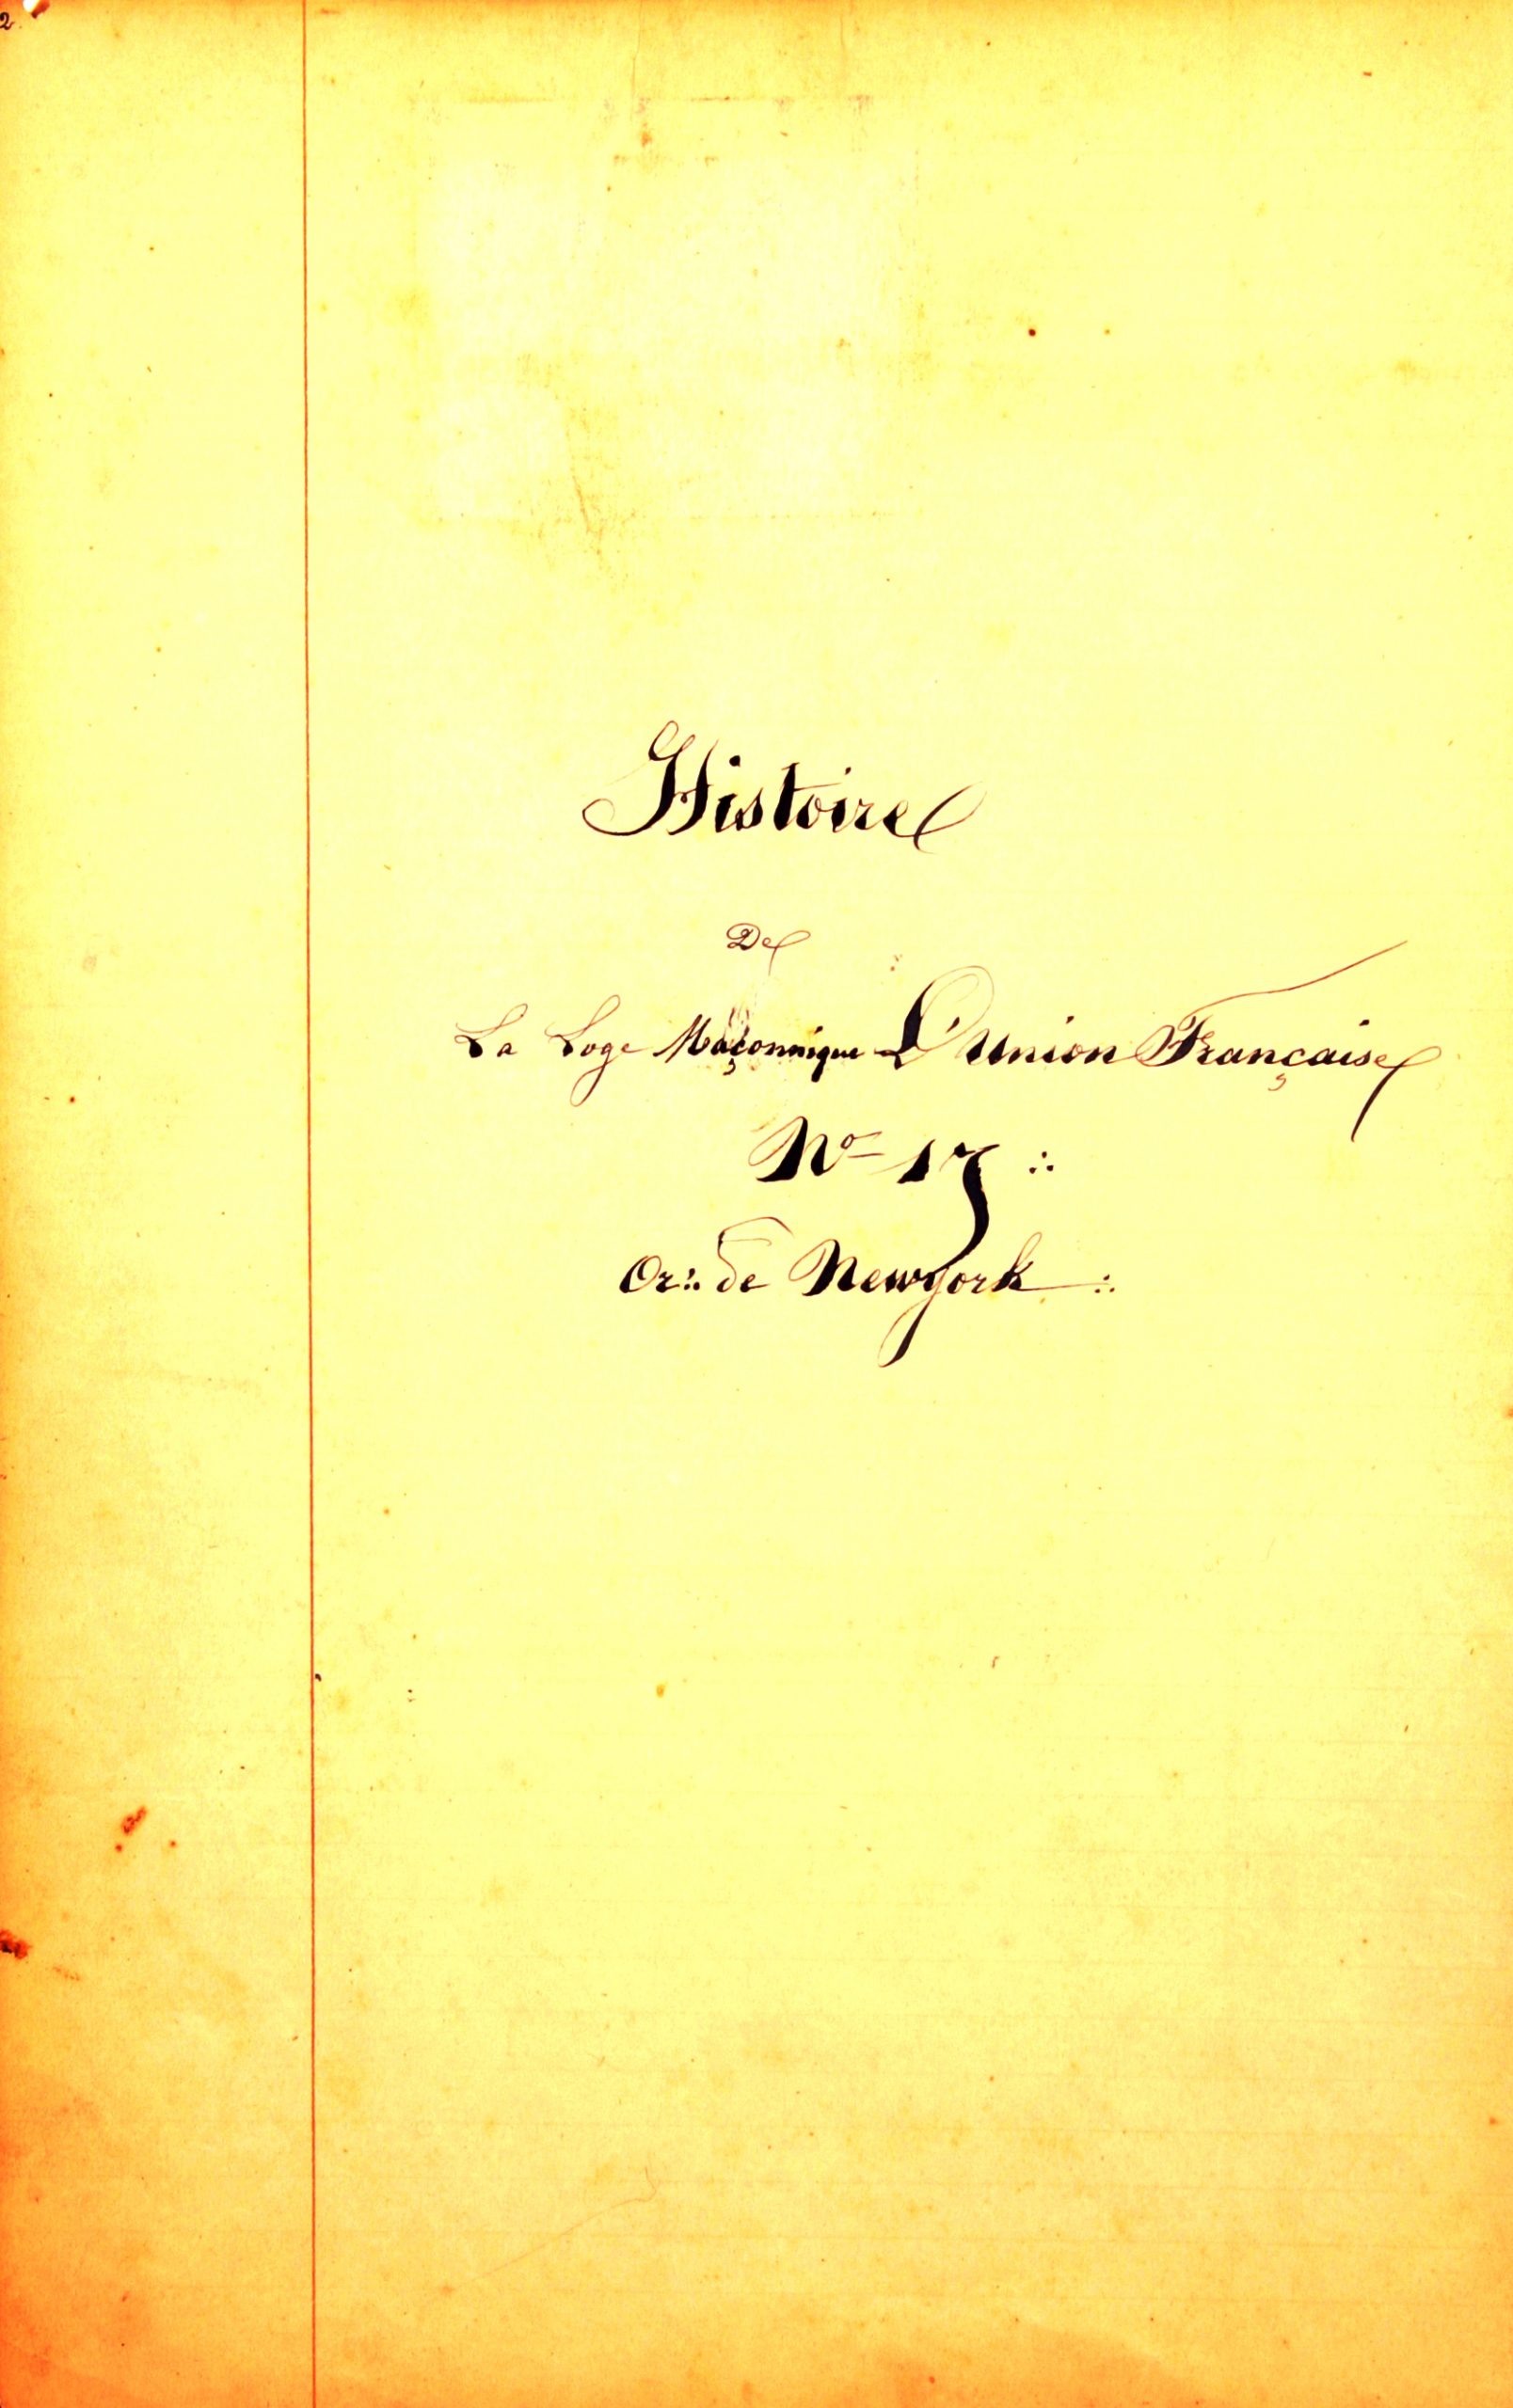 2.
Histoire
De
La Loge Maçonnique L'Union Française
No 17 ∴
Or∴ de Newyork ∴